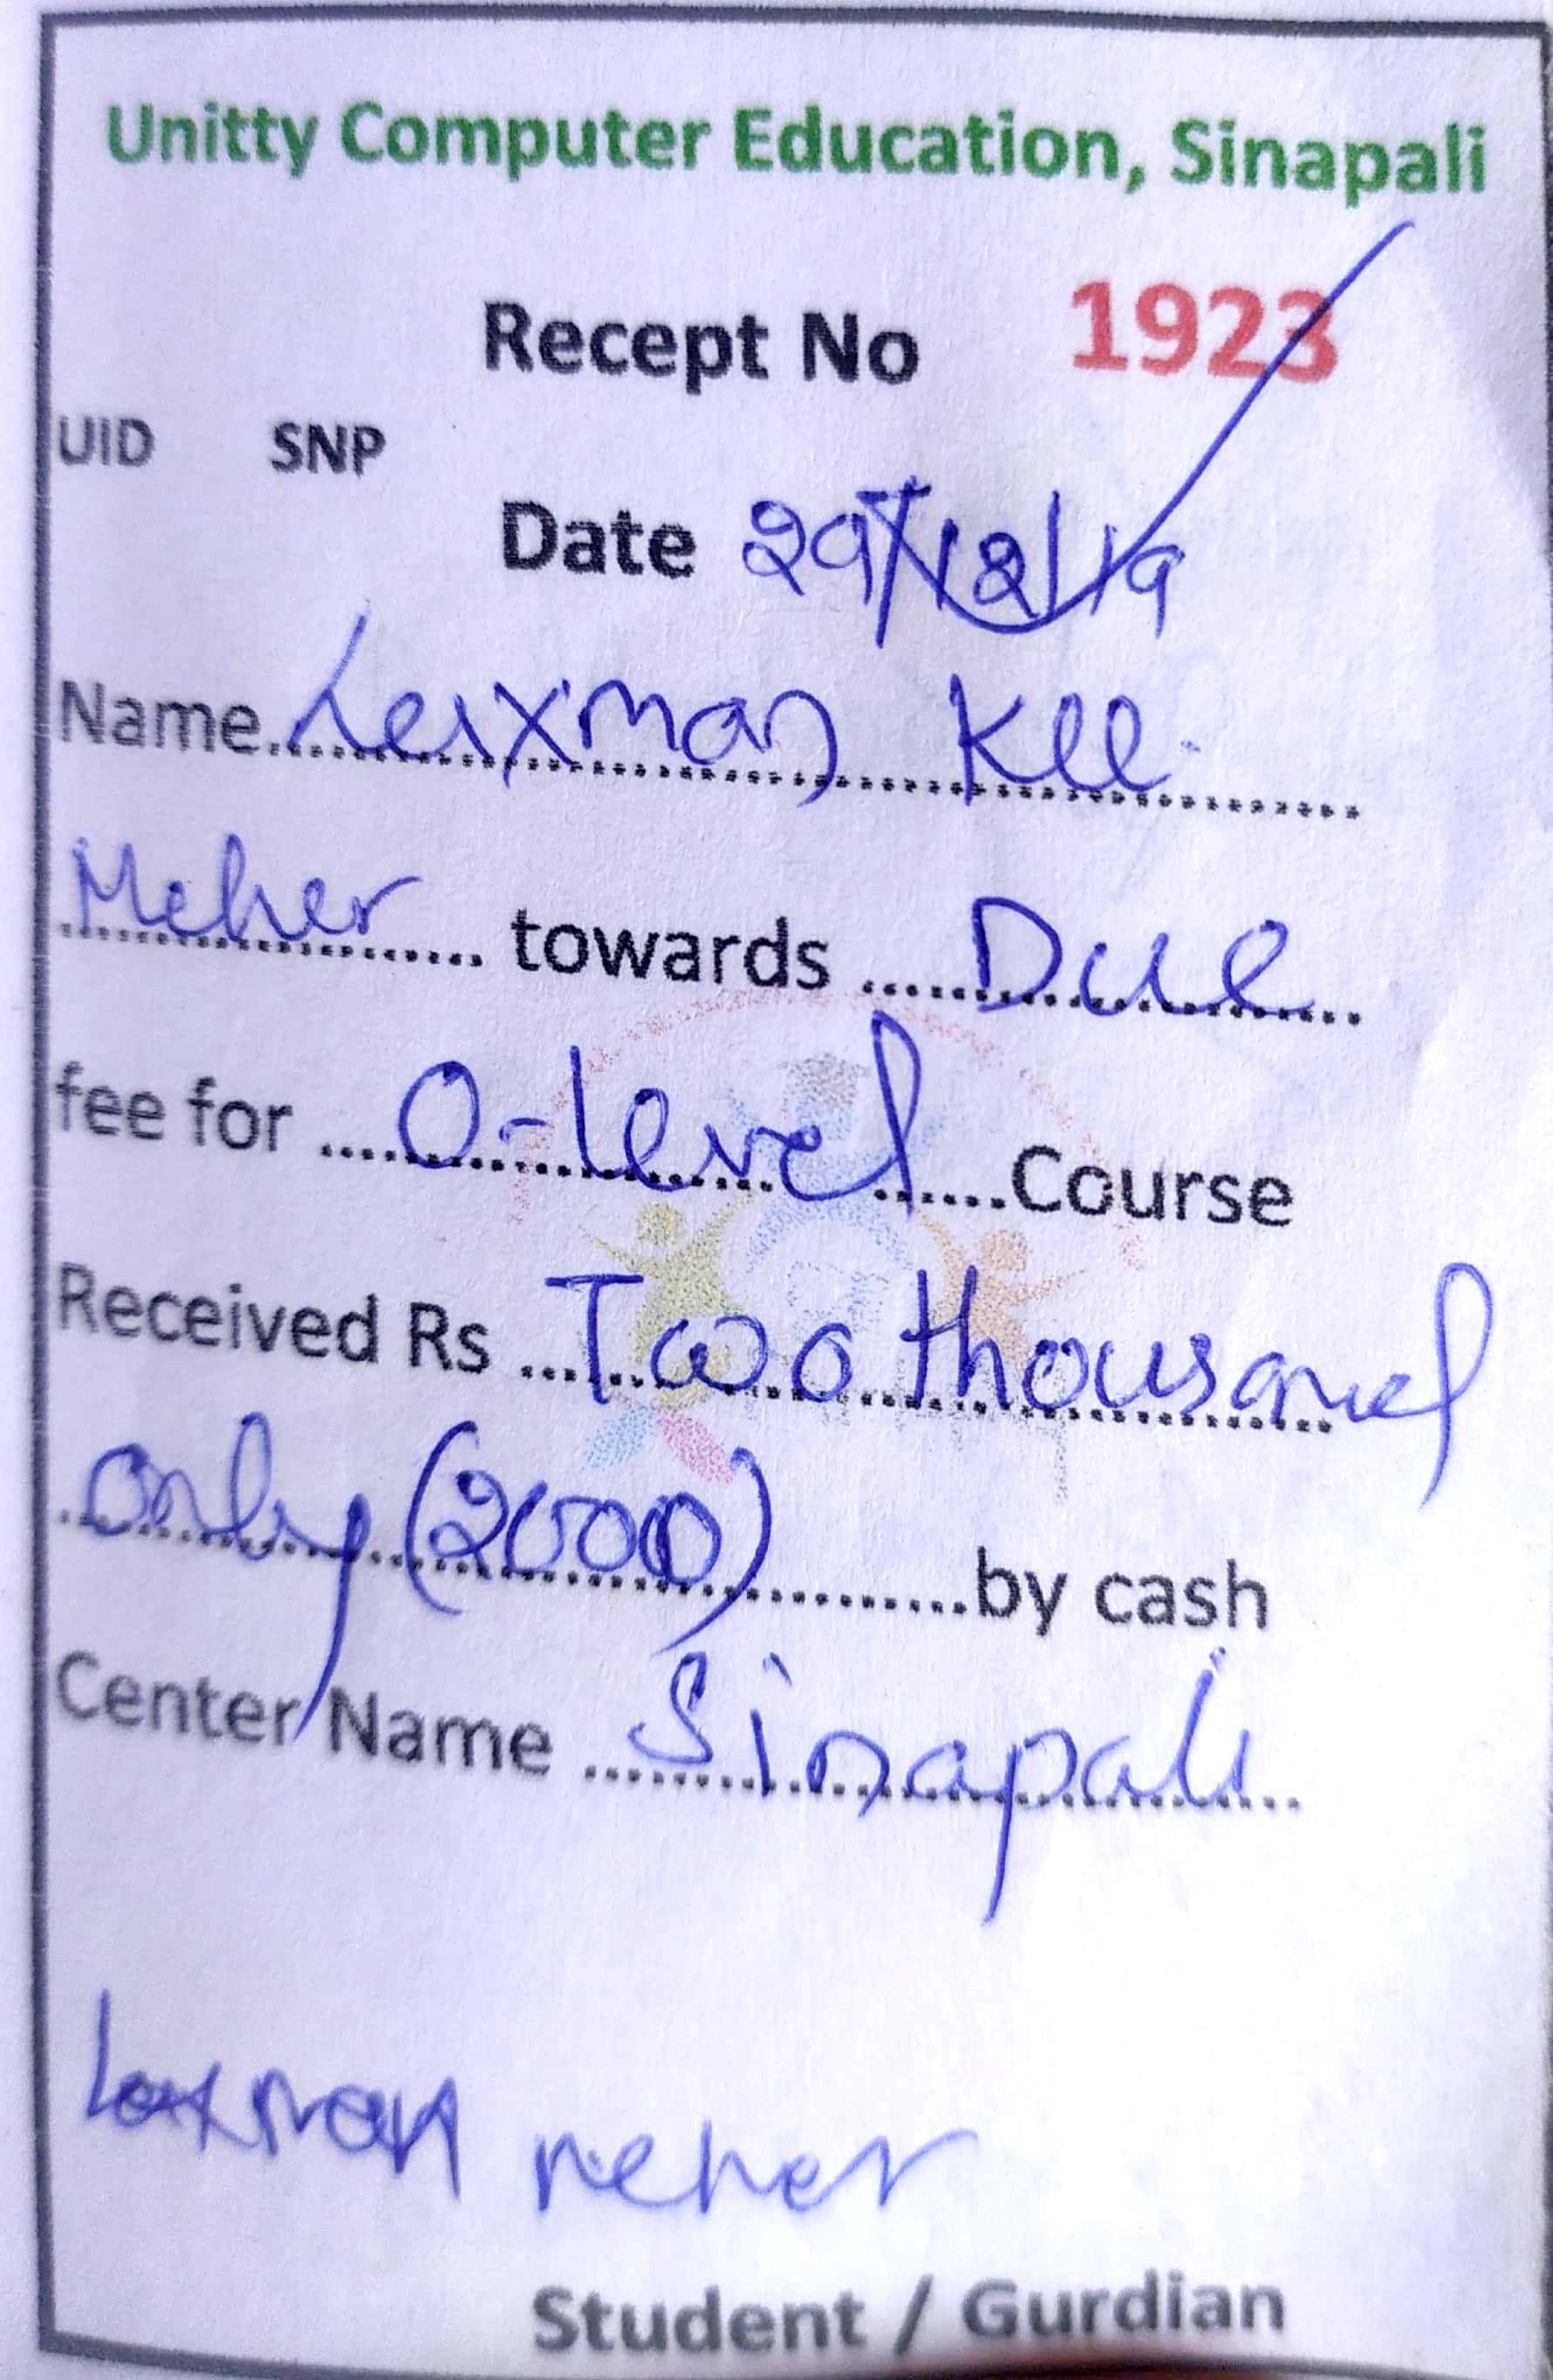 Unitty Computer Education, Sinapali
Recept No 1923
UID SNP
Date 29/12/19
Name Laxman Ku.
Meher towards Due
fee for O-level Course
Received Rs Two thousand
only (2000) by cash
Center Name Sinapali
Laxman meher
Student / Gurdian